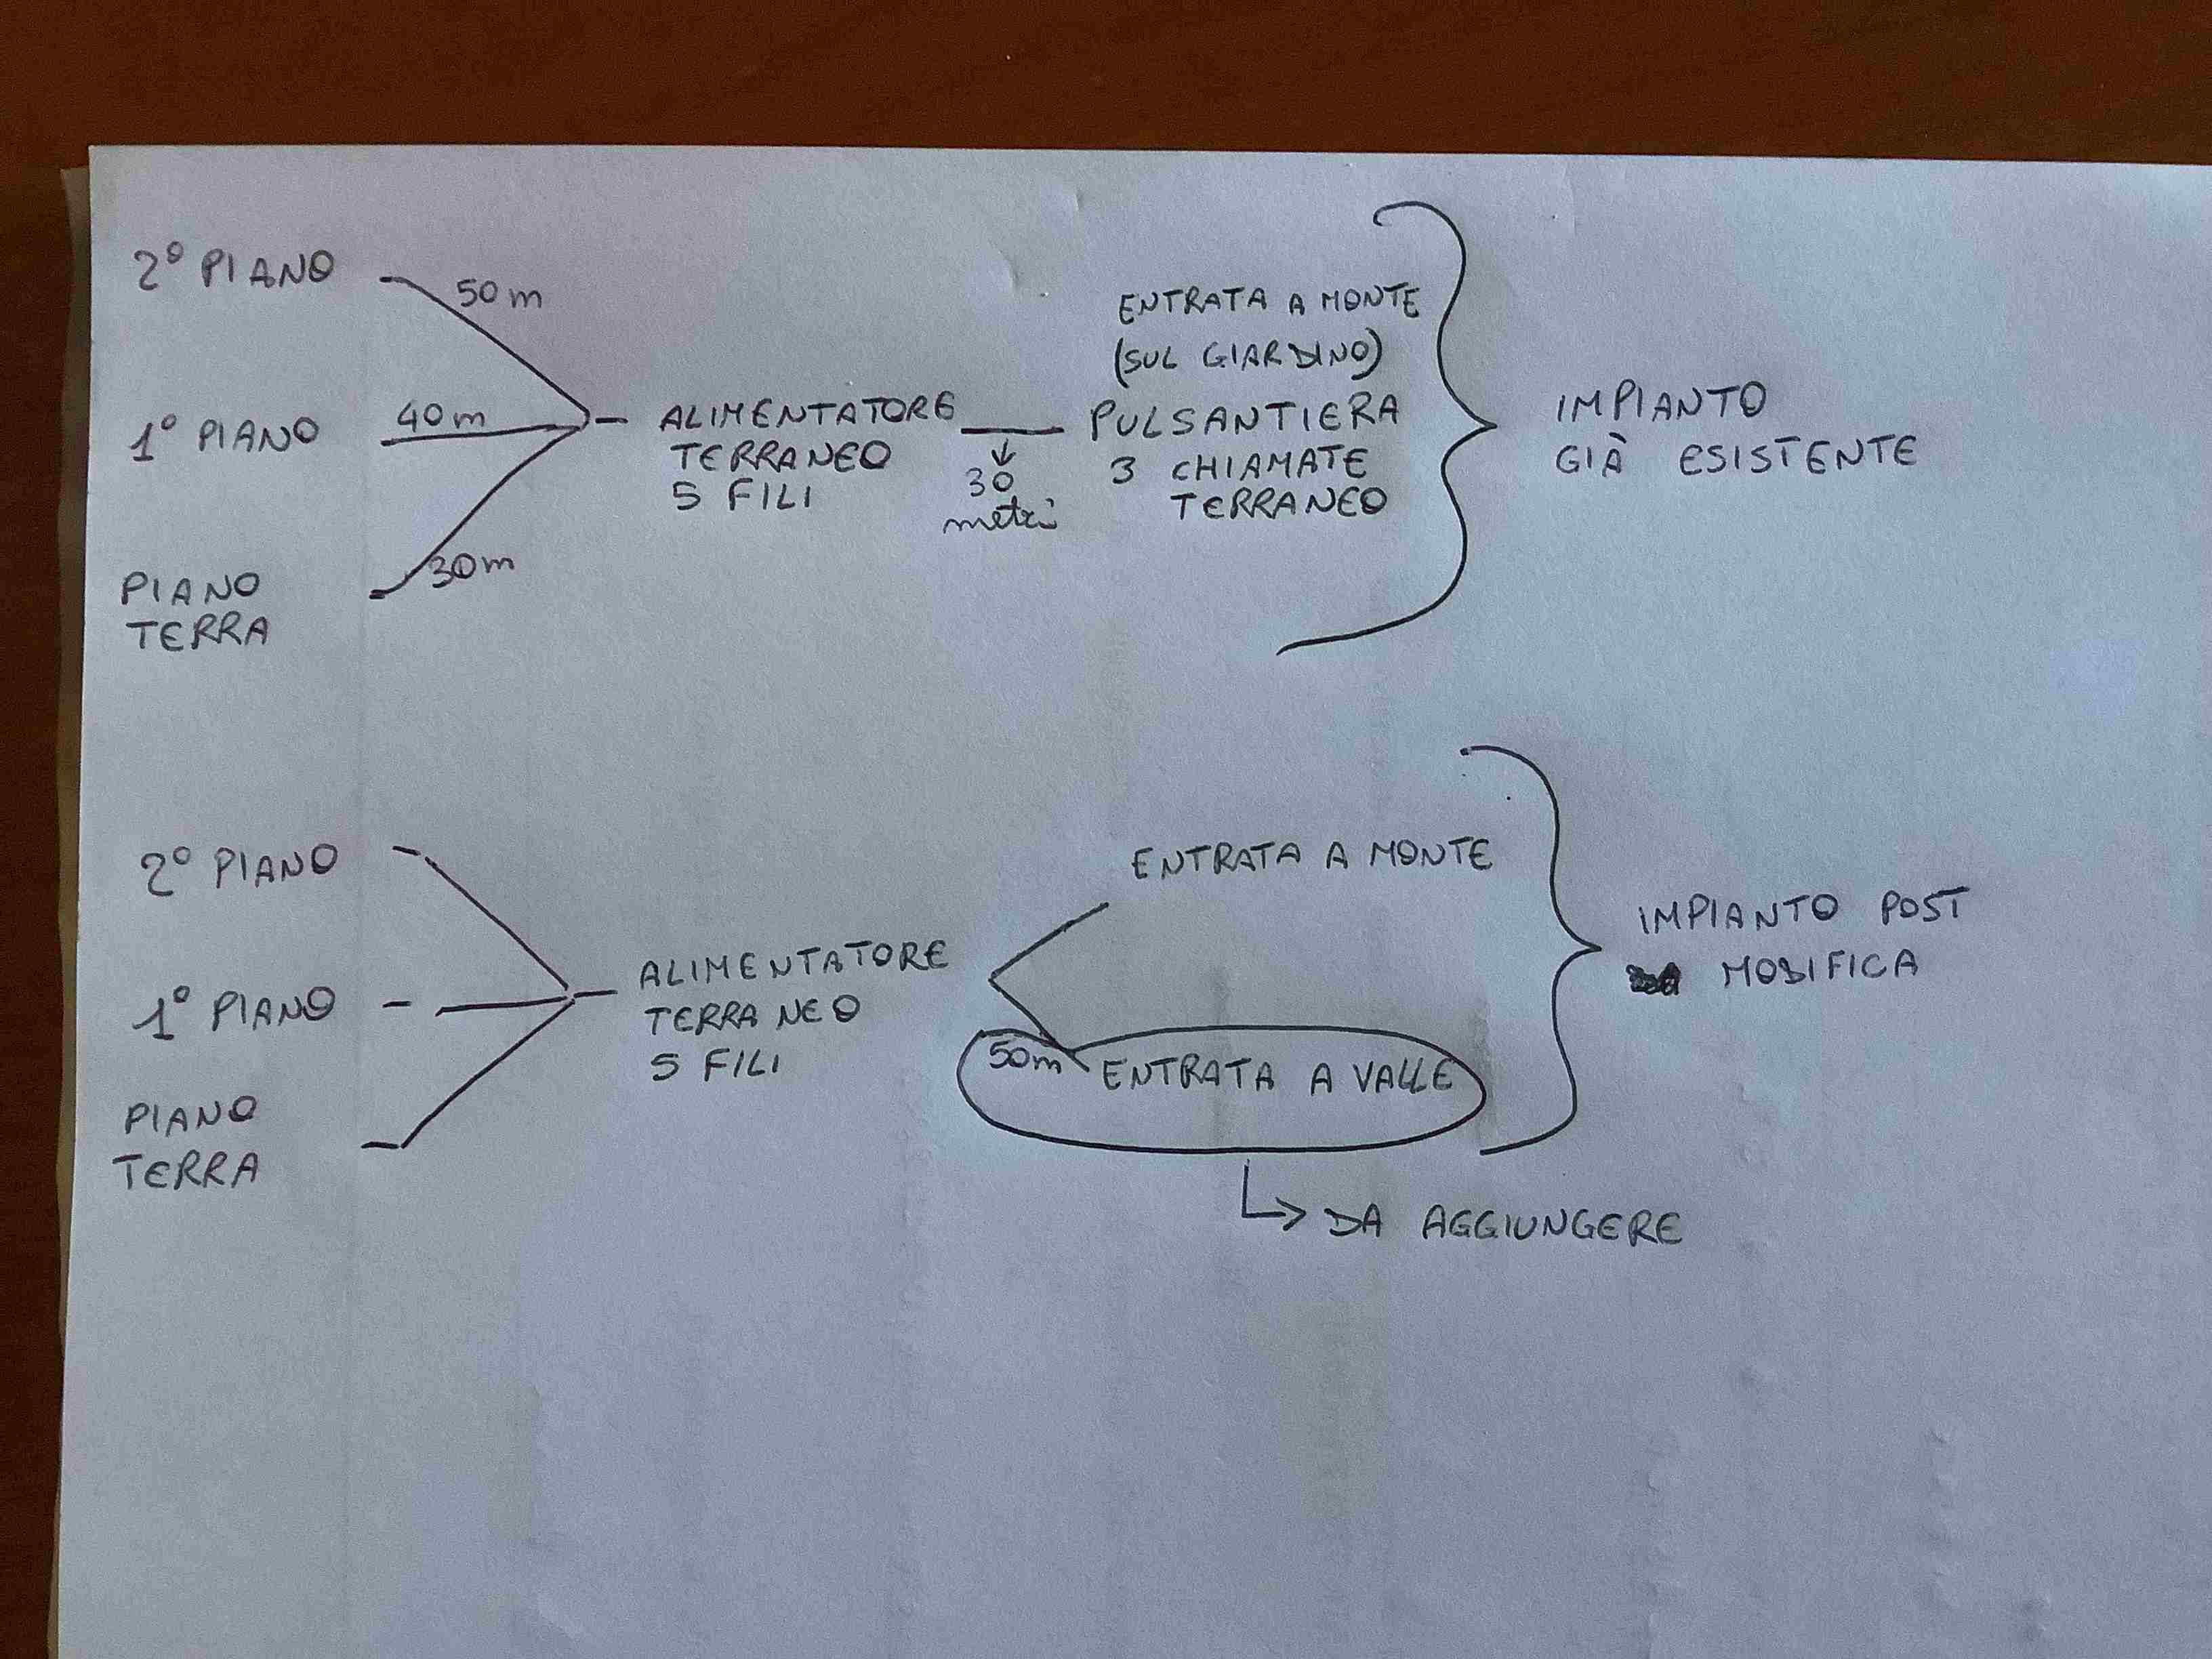 2° PIANO
50 m
1° PIANO
40 m
PIANO
TERRA
30 m
ALIMENTATORE
TERRANEO
5 FILI
30
metri
ENTRATA A MONTE
(SUL GIARDINO)
PULSANTIERA
3 CHIAMATE
TERRANEO
IMPIANTO
GIÀ ESISTENTE
2° PIANO
1° PIANO
PIANO
TERRA
ALIMENTATORE
TERRANEO
5 FILI
ENTRATA A MONTE
50m ENTRATA A VALLE
DA AGGIUNGERE
IMPIANTO POST
MODIFICA